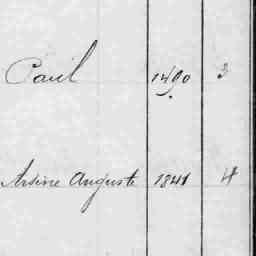 Paul 1490 3
Arsène Auguste 1841 4